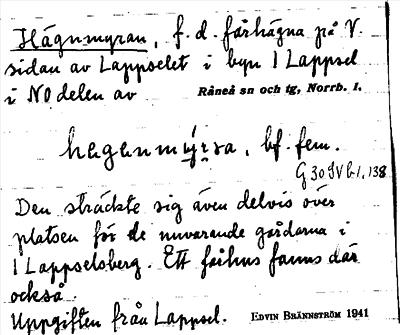 Hägnmyran, f.d. fårhägna på V.
sidan av Lappselet i byn 1 Lappsel
i NO delen av Råneå sn och tg, Norrb. l.
haganmy̆rsa, bf. fem.
G 30 IV b 1, 138
Den sträckte sig även delvis över
platsen för de nuvarande gårdarna i
1 Lappselsberg. Ett fårhus fanns där
också.
Uppgiften från Lappsel. EDVIN BRÄNNSTRÖM 1941